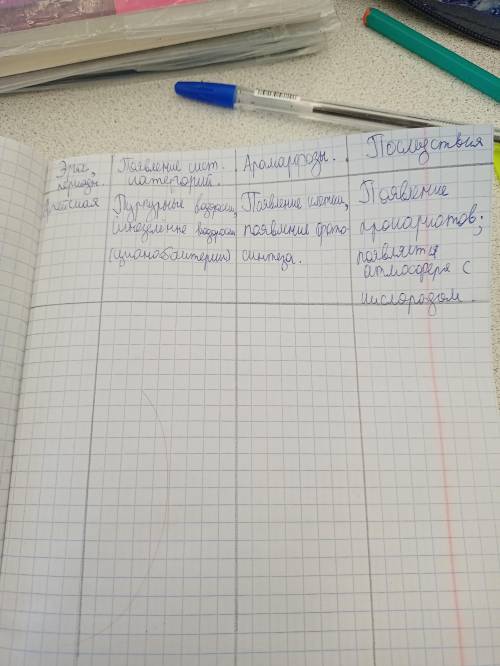 Эры, периоды. Появление сист. категорий. Ароморфозы. Последствия
Архейская
Пурпурные водоросли,
синезелёные водоросли
(цианобактерии)
Появление клетки,
появление фото-
синтеза.
Появление
прокариотов;
появляется
атмосфера с
кислородом.